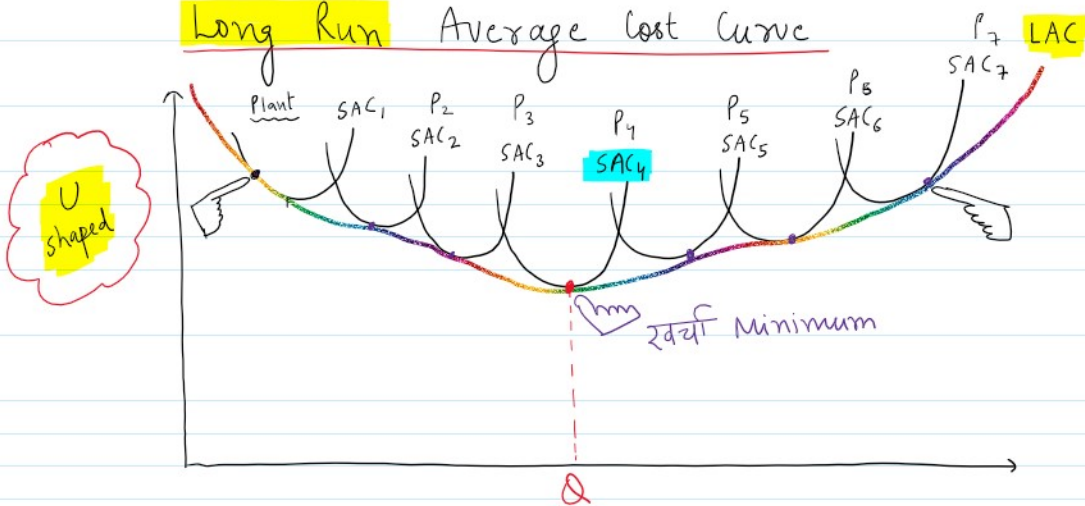 Long Run Average Cost Curve
LAC
Plant
SAC1
P2
SAC2
P3
SAC3
P4
SAC4
P5
SAC5
P6
SAC6
P7
SAC7
U
shaped
खर्चा Minimum
Q